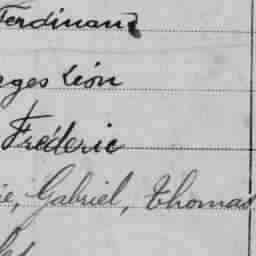 Ferdinand
Léon
Frédéric
Gabriel, Thomas